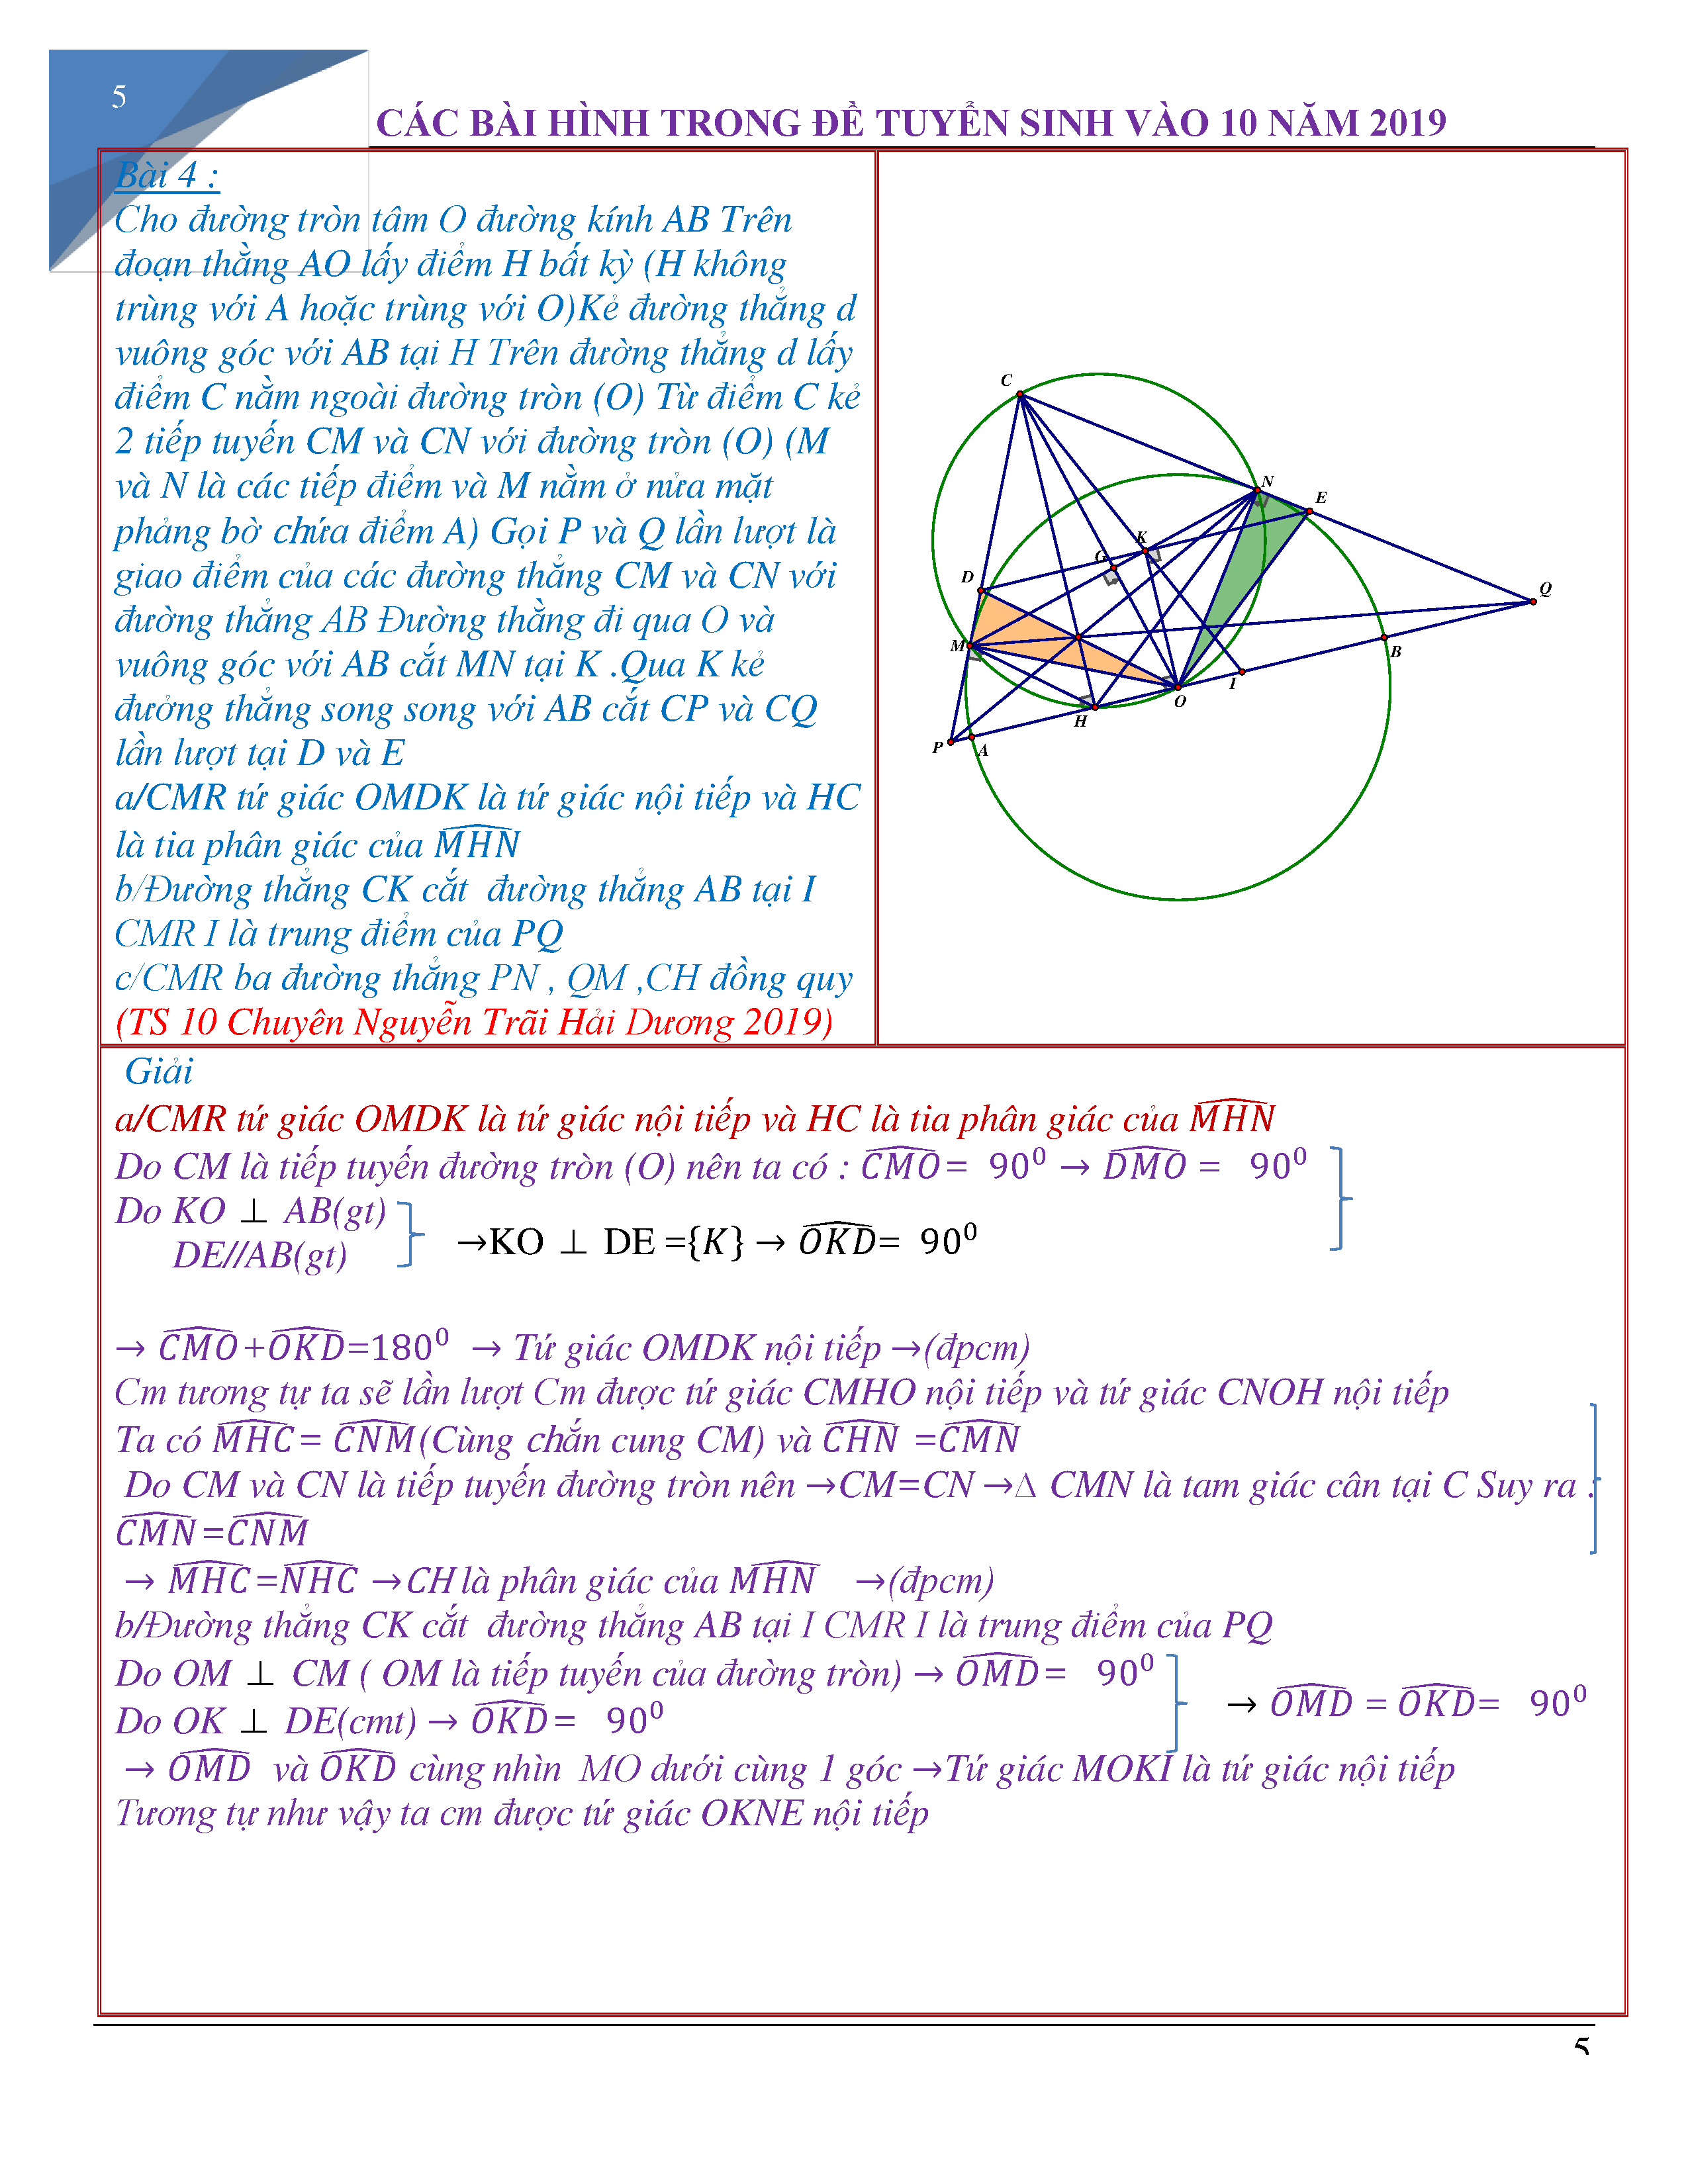 5
CÁC BÀI HÌNH TRONG ĐỀ TUYỂN SINH VÀO 10 NĂM 2019
Bài 4 :
Cho đường tròn tâm O đường kính AB Trên
đoạn thẳng AO lấy điểm H bất kỳ (H không
trùng với A hoặc trùng với O)Kẻ đường thẳng d
vuông góc với AB tại H Trên đường thẳng d lấy
điểm C nằm ngoài đường tròn (O) Từ điểm C kẻ
2 tiếp tuyến CM và CN với đường tròn (O) (M
và N là các tiếp điểm và M nằm ở nửa mặt
phảng bờ chứa điểm A) Gọi P và Q lần lượt là
giao điểm của các đường thẳng CM và CN với
đường thẳng AB Đường thẳng đi qua O và
vuông góc với AB cắt MN tại K .Qua K kẻ
đưởng thẳng song song với AB cắt CP và CQ
lần lượt tại D và E
a/CMR tứ giác OMDK là tứ giác nội tiếp và HC
là tia phân giác của \widehat{MHN}
b/Đường thẳng CK cắt đường thẳng AB tại I
CMR I là trung điểm của PQ
c/CMR ba đường thẳng PN , QM ,CH đồng quy
(TS 10 Chuyên Nguyễn Trãi Hải Dương 2019)
C
N
E
K
G
D
Q
M
B
I
O
H
P
A
Giải
a/CMR tứ giác OMDK là tứ giác nội tiếp và HC là tia phân giác của \widehat{MHN}
Do CM là tiếp tuyến đường tròn (O) nên ta có : \widehat{CMO}= 90⁰ → \widehat{DMO} = 90⁰
Do KO ⊥ AB(gt)
DE//AB(gt)
→KO ⊥ DE ={K} → \widehat{OKD}= 90⁰
→ \widehat{CMO}+\widehat{OKD}=180⁰ → Tứ giác OMDK nội tiếp →(đpcm)
Cm tương tự ta sẽ lần lượt Cm được tứ giác CMHO nội tiếp và tứ giác CNOH nội tiếp
Ta có \widehat{MHC}= \widehat{CNM}(Cùng chắn cung CM) và \widehat{CHN} =\widehat{CMN}
Do CM và CN là tiếp tuyến đường tròn nên →CM=CN →∆ CMN là tam giác cân tại C Suy ra :
\widehat{CMN}=\widehat{CNM}
→ \widehat{MHC}=\widehat{NHC} →CH là phân giác của \widehat{MHN} →(đpcm)
b/Đường thẳng CK cắt đường thẳng AB tại I CMR I là trung điểm của PQ
Do OM ⊥ CM ( OM là tiếp tuyến của đường tròn) → \widehat{OMD}= 90⁰
Do OK ⊥ DE(cmt) → \widehat{OKD}= 90⁰
→ \widehat{OMD} = \widehat{OKD}= 90⁰
→ \widehat{OMD} và \widehat{OKD} cùng nhìn MO dưới cùng 1 góc →Tứ giác MOKI là tứ giác nội tiếp
Tương tự như vậy ta cm được tứ giác OKNE nội tiếp
5